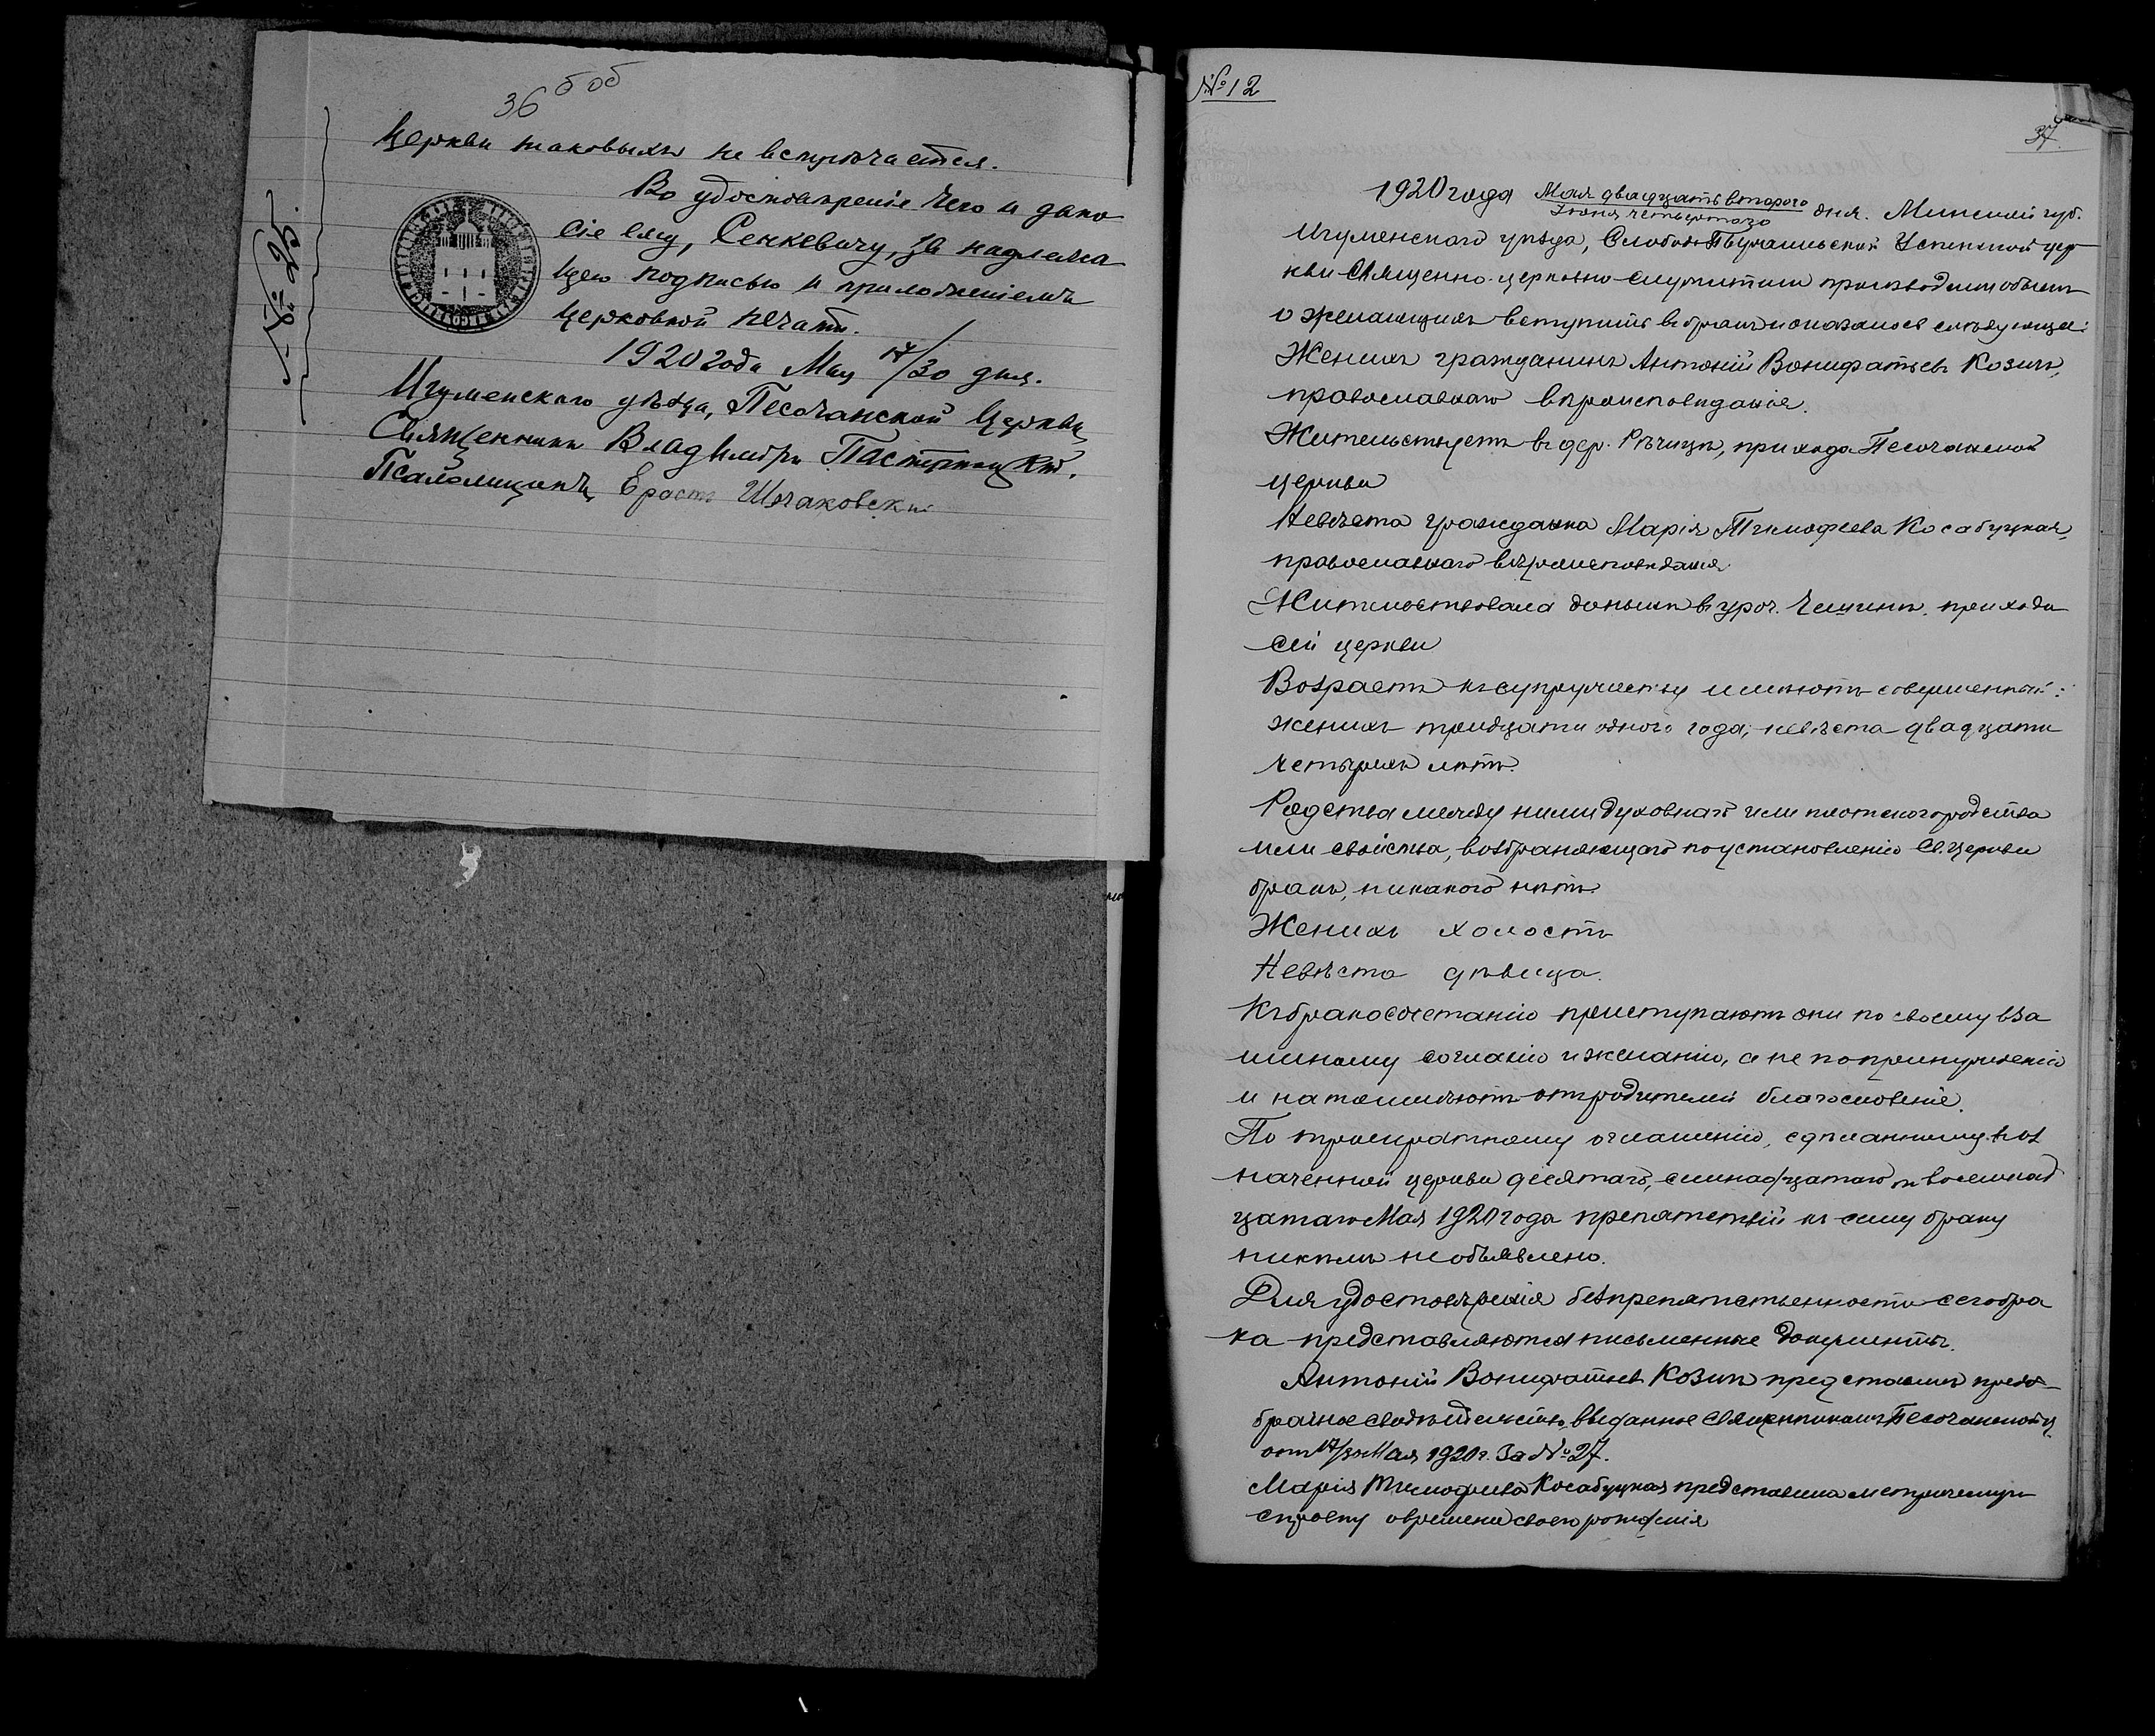 36 об
Церкви таковыхъ не встрѣчается.
Во удостовѣреніе чего и дано
сіе ему, Сенкевичу, за надлежа
щею подписью и приложеніемъ
церковной печати.
1920 года Мая 17/30 дня.
Игуменскаго уѣзда, Песочанской Церкви
Священникъ Владиміръ
Псаломщикъ Ерастъ
№ 25.
№ 12
37
1920 года Мая двадцать второго / Іюня четвертаго дня. Минской губ.
Игуменскаго уѣзда, Слободо- Успенской цер
кви Священно-церковно-служители производили обыскъ
о желающихъ вступить въ бракъ и оказалось слѣдующее:
Женихъ гражданинъ Антоній Вонифатьевъ Козичъ,
православнаго вѣроисповѣданія.
Жительствуетъ въ дер. Рѣчицѣ, прихода Песочанской
церкви
Невѣста гражданка Марія Тимофеева Косабуцкая,
православнаго вѣроисповѣданія.
Жительствовала донынѣ въ уроч. прихода
сей церкви
Возрастъ къ супружеству имѣютъ совершенный:
женихъ тридцати одного года, невѣста двадцати
четырехъ лѣтъ.
Родства между ними духовнаго или плотскаго родства
или свойства, возбраняющаго по установленію Св. Церкви
бракъ, никакого нѣтъ.
Женихъ холостъ
Невѣста дѣвица.
Къ бракосочетанію приступаютъ они по своему вза
имному согласію и желанію, а не по принужденію
и на то имѣютъ отъ родителей благословеніе.
По троекратному оглашенію, сдѣланному въ оз
наченной церкви десятаго, семнадцатаго и восемнад
цатаго Мая 1920 года препятствій къ сему браку
никѣмъ не объявлено.
Для удостовѣренія безпрепятственности сего бра
ка представляются письменные документы.
Антоній Вонифатьевъ Козичъ представилъ предъ
брачное свидѣтельство, выданное Священникомъ Песочанской ц.
отъ 17/30 Мая 1920 г. за № 27.
Марія Тимофеева Косабуцкая представила метрическую
справку о времени своего рожденія